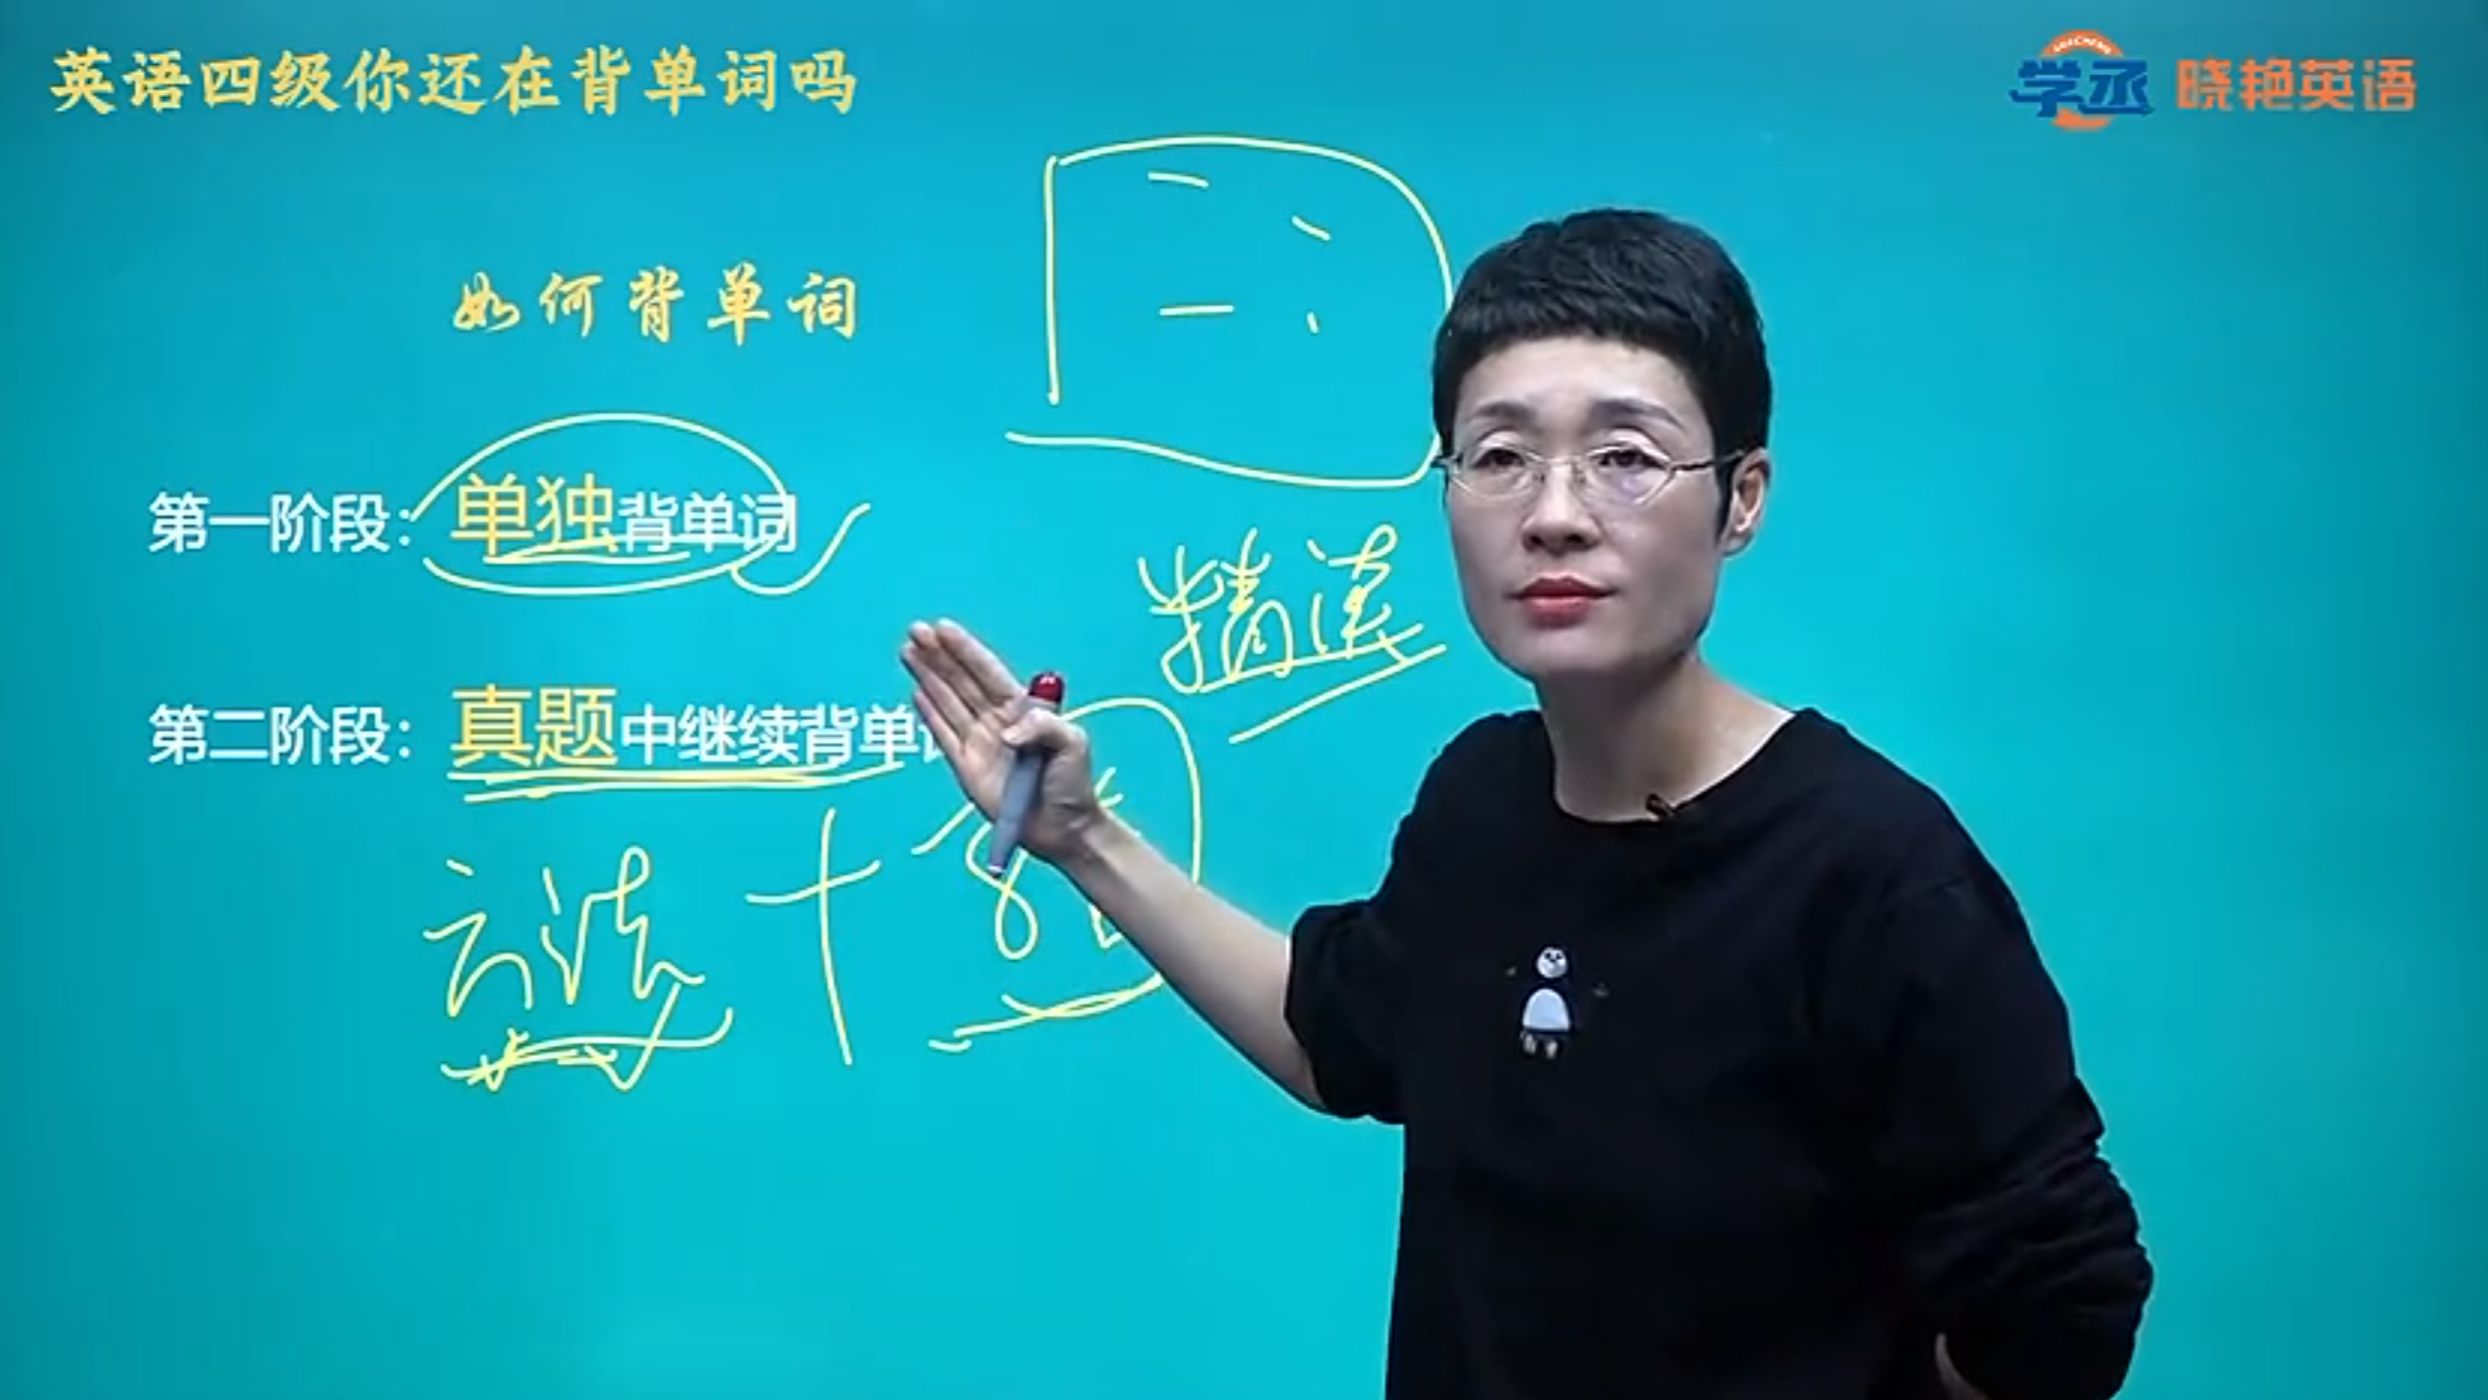 英语四级你还在背单词吗
学丞 晓艳英语
如何背单词
第一阶段：单独背单词
精读
第二阶段：真题中继续背单
方法 十